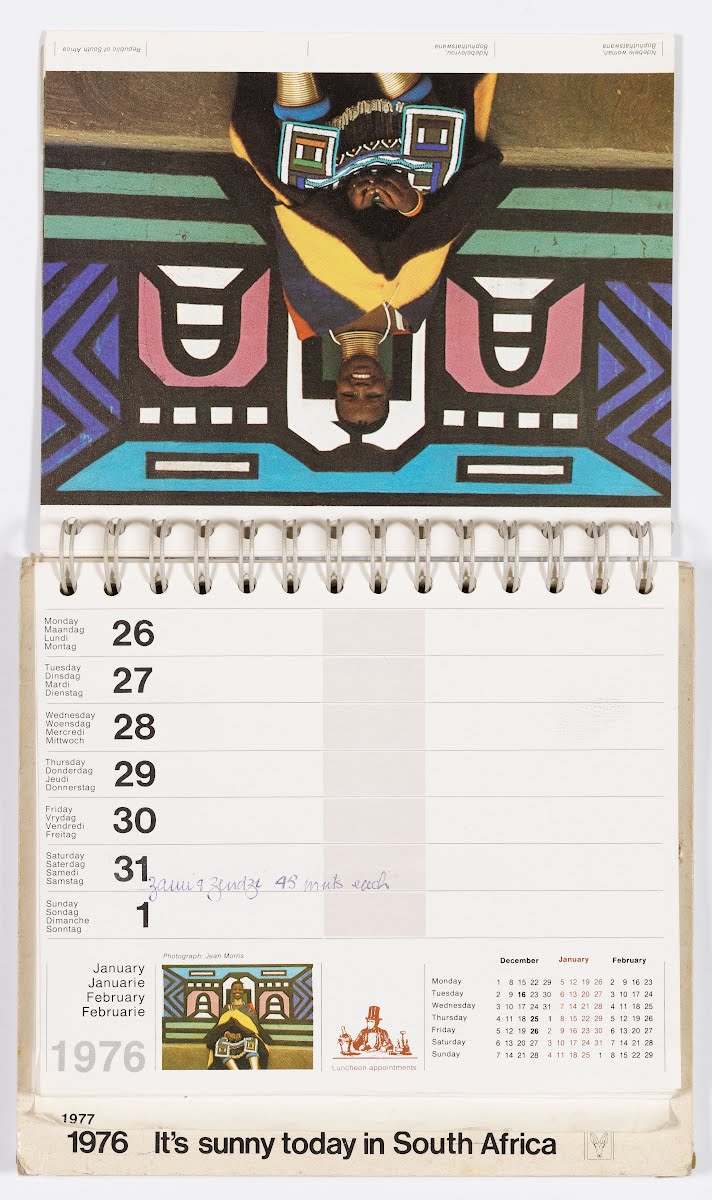 Ndebele woman,
Bophuthatswana
Ndebelevrou,
Bophuthatswana
Republic of South Africa
Monday
Maandag
Lundi
Montag
26
Tuesday
Dinsdag
Mardi
Dienstag
27
Wednesday
Woensdag
Mercredi
Mittwoch
28
Thursday
Donderdag
Jeudi
Donnerstag
29
Friday
Vrydag
Vendredi
Freitag
30
Saturday
Saterdag
Samedi
Samstag
31
Zami & Zindzi 45 mnts each
Sunday
Sondag
Dimanche
Sonntag
1
January
Januarie
February
Februarie
1976
Photograph: Jean Morris
Luncheon appointments
December January February
Monday 1 8 15 22 29 5 12 19 26 2 9 16 23
Tuesday 2 9 16 23 30 6 13 20 27 3 10 17 24
Wednesday 3 10 17 24 31 7 14 21 28 4 11 18 25
Thursday 4 11 18 25 1 8 15 22 29 5 12 19 26
Friday 5 12 19 26 2 9 16 23 30 6 13 20 27
Saturday 6 13 20 27 3 10 17 24 31 7 14 21 28
Sunday 7 14 21 28 4 11 18 25 1 8 15 22 29
1977
1976 It's sunny today in South Africa